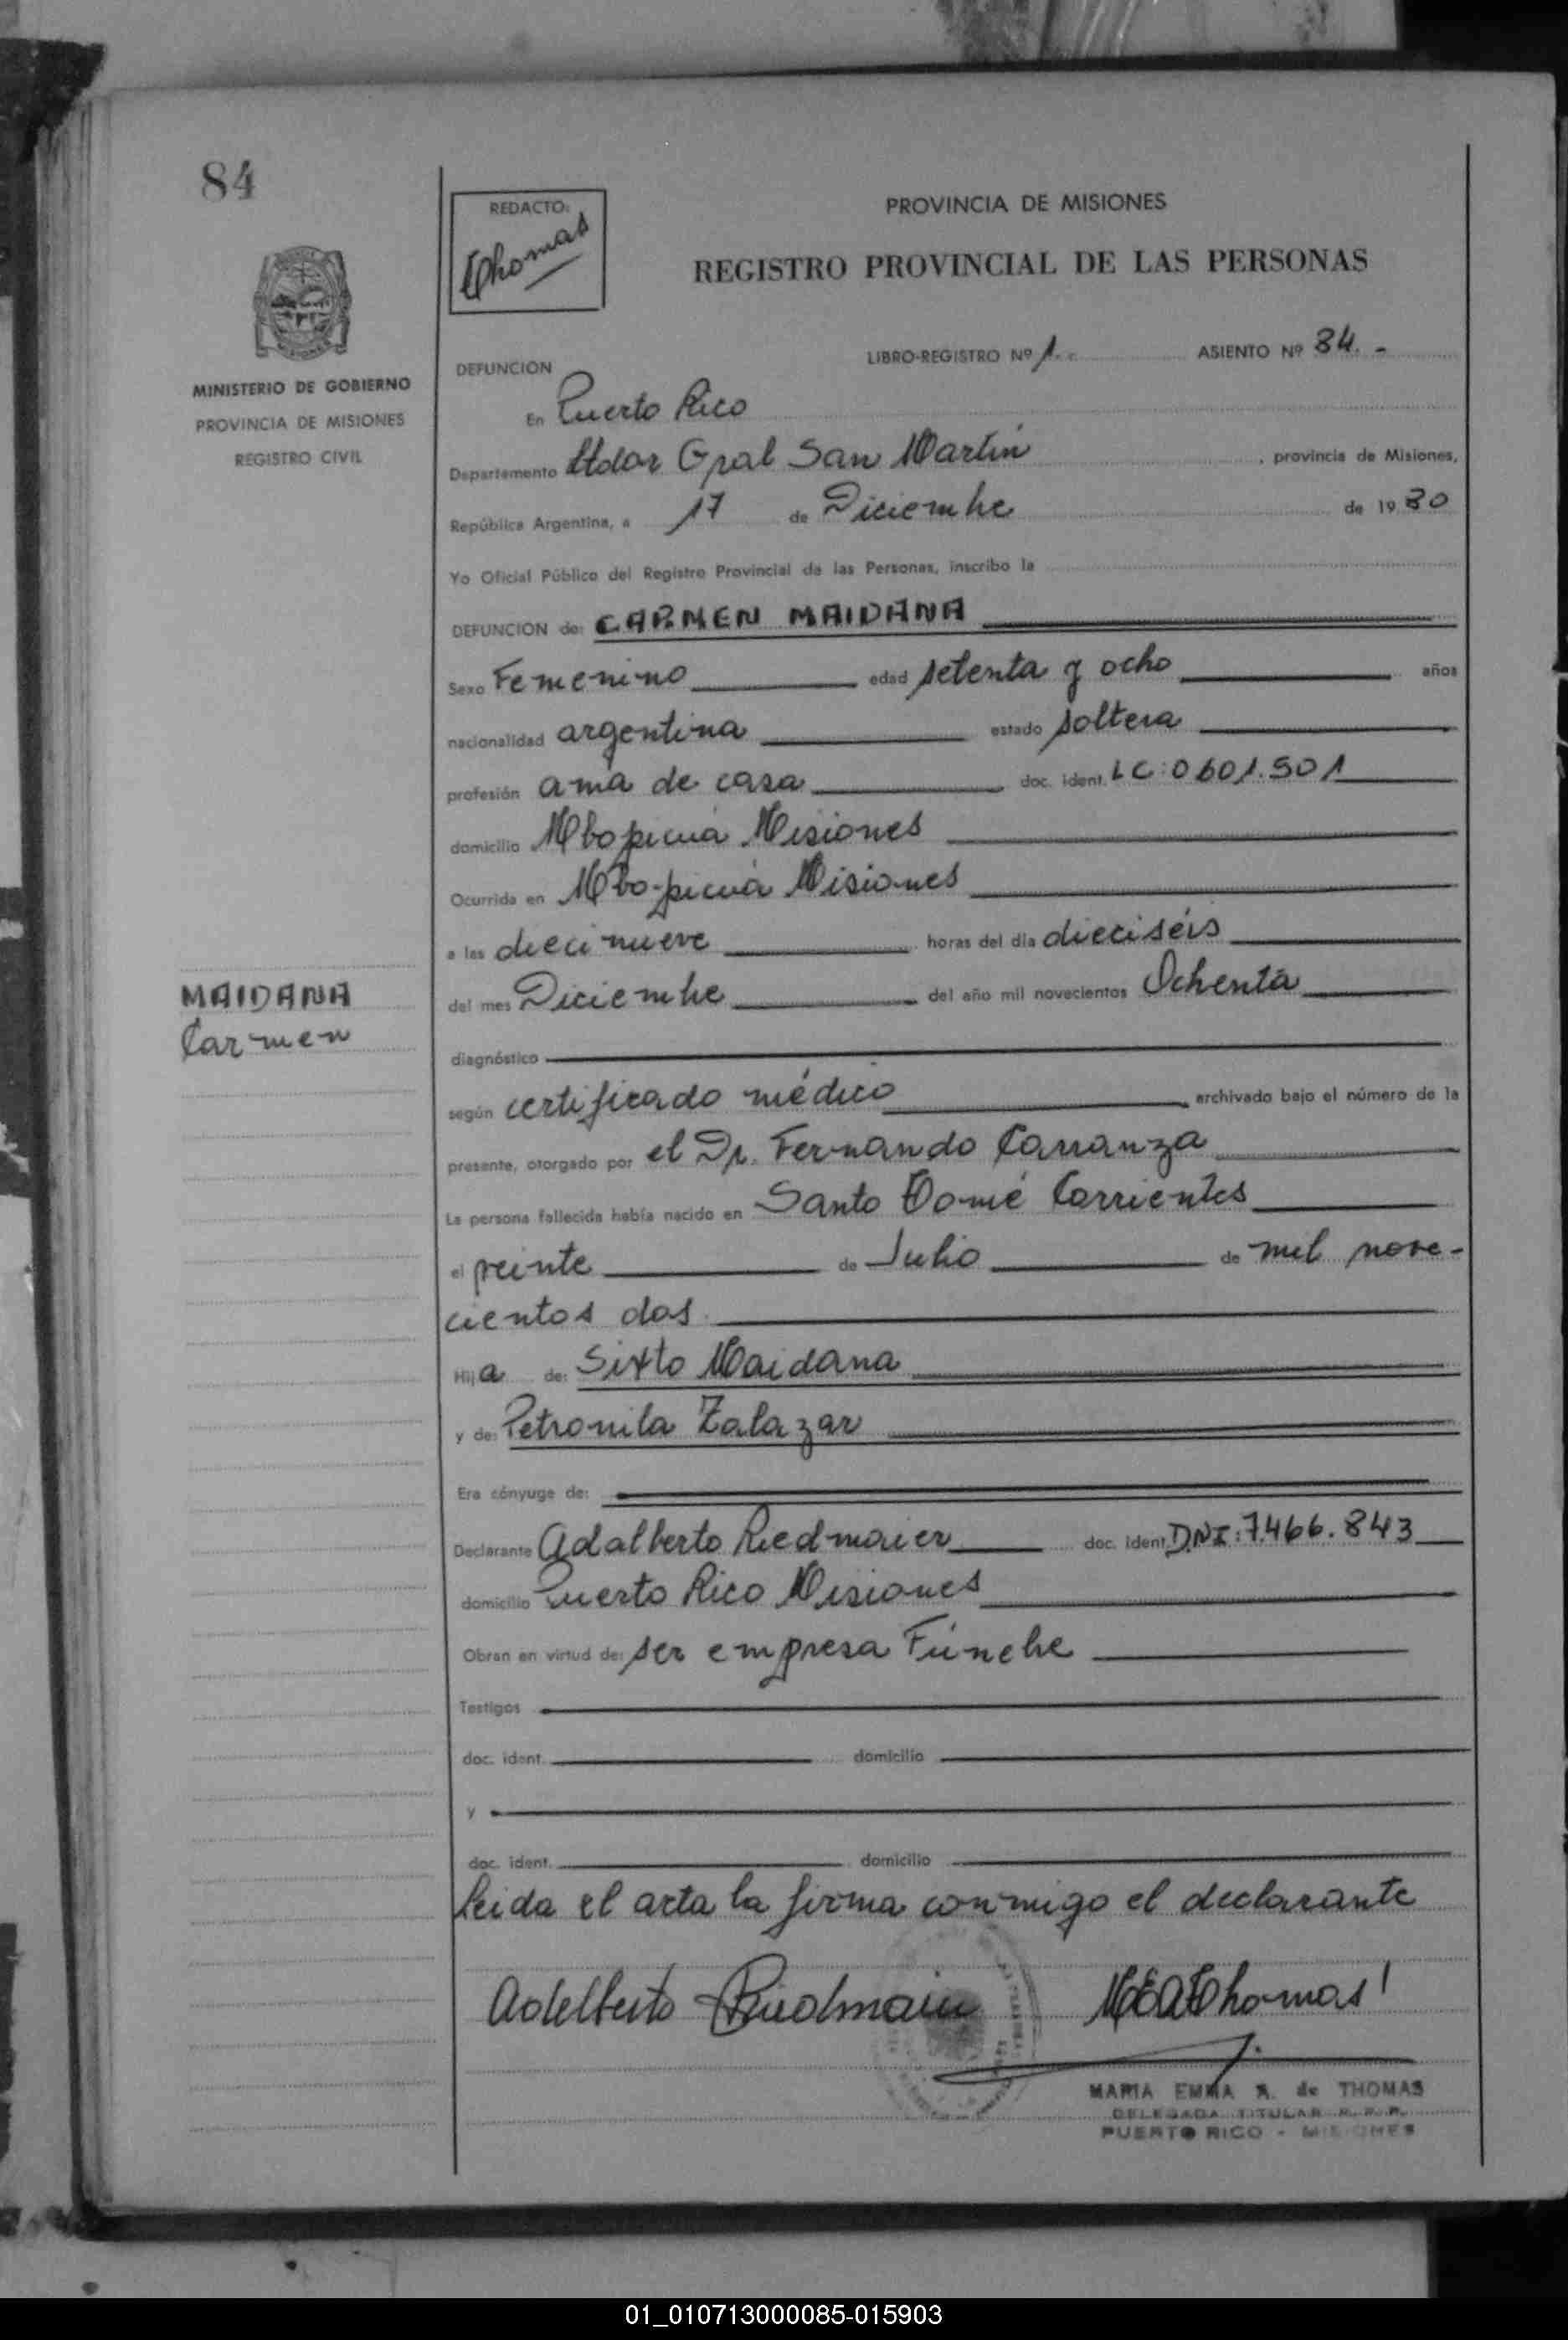 84
REDACTO:
Thomas
PROVINCIA DE MISIONES
REGISTRO PROVINCIAL DE LAS PERSONAS
MISIONES
MINISTERIO DE GOBIERNO
PROVINCIA DE MISIONES
REGISTRO CIVIL
LIBRO-REGISTRO Nº 1. ASIENTO Nº 84. -
DEFUNCION
En Puerto Rico
Departamento Ltdor Gral San Martín , provincia de Misiones,
República Argentina, a 17 de Diciembre de 1980
Yo Oficial Público del Registro Provincial de las Personas, inscribo la
DEFUNCION de: CARMEN MAIDANA
Sexo Femenino edad setenta y ocho años
nacionalidad argentina estado soltera
profesión ama de casa doc. ident. LC: 0601.501
domicilio Mbopicuá Misiones
Ocurrida en Mbo-picuá Misiones
a las diecinueve horas del día dieciséis
MAIDANA
Carmen
del mes Diciembre del año mil novecientos Ochenta
diagnóstico
según certificado médico archivado bajo el número de la
presente, otorgado por el Dr. Fernando Carranza
La persona fallecida había nacido en Santo Tomé Corrientes
el veinte de Julio de mil nove-
cientos dos
Hija de: Sixto Maidana
y de: Petronila Zalazar
Era cónyuge de:
Declarante Adalberto Riedmaier doc. ident. D.N.I: 7.466.843
domicilio Puerto Rico Misiones
Obran en virtud de: ser empresa Fúnebre
Testigos
doc. ident. domicilio
y
doc. ident. domicilio
Leida el acta la firma conmigo el declarante
Adelberto Riedmaier MEAThomas
MARIA EMMA A. de THOMAS
DELEGADA TITULAR R. P. P.
PUERTO RICO - MISIONES
01_010713000085-015903